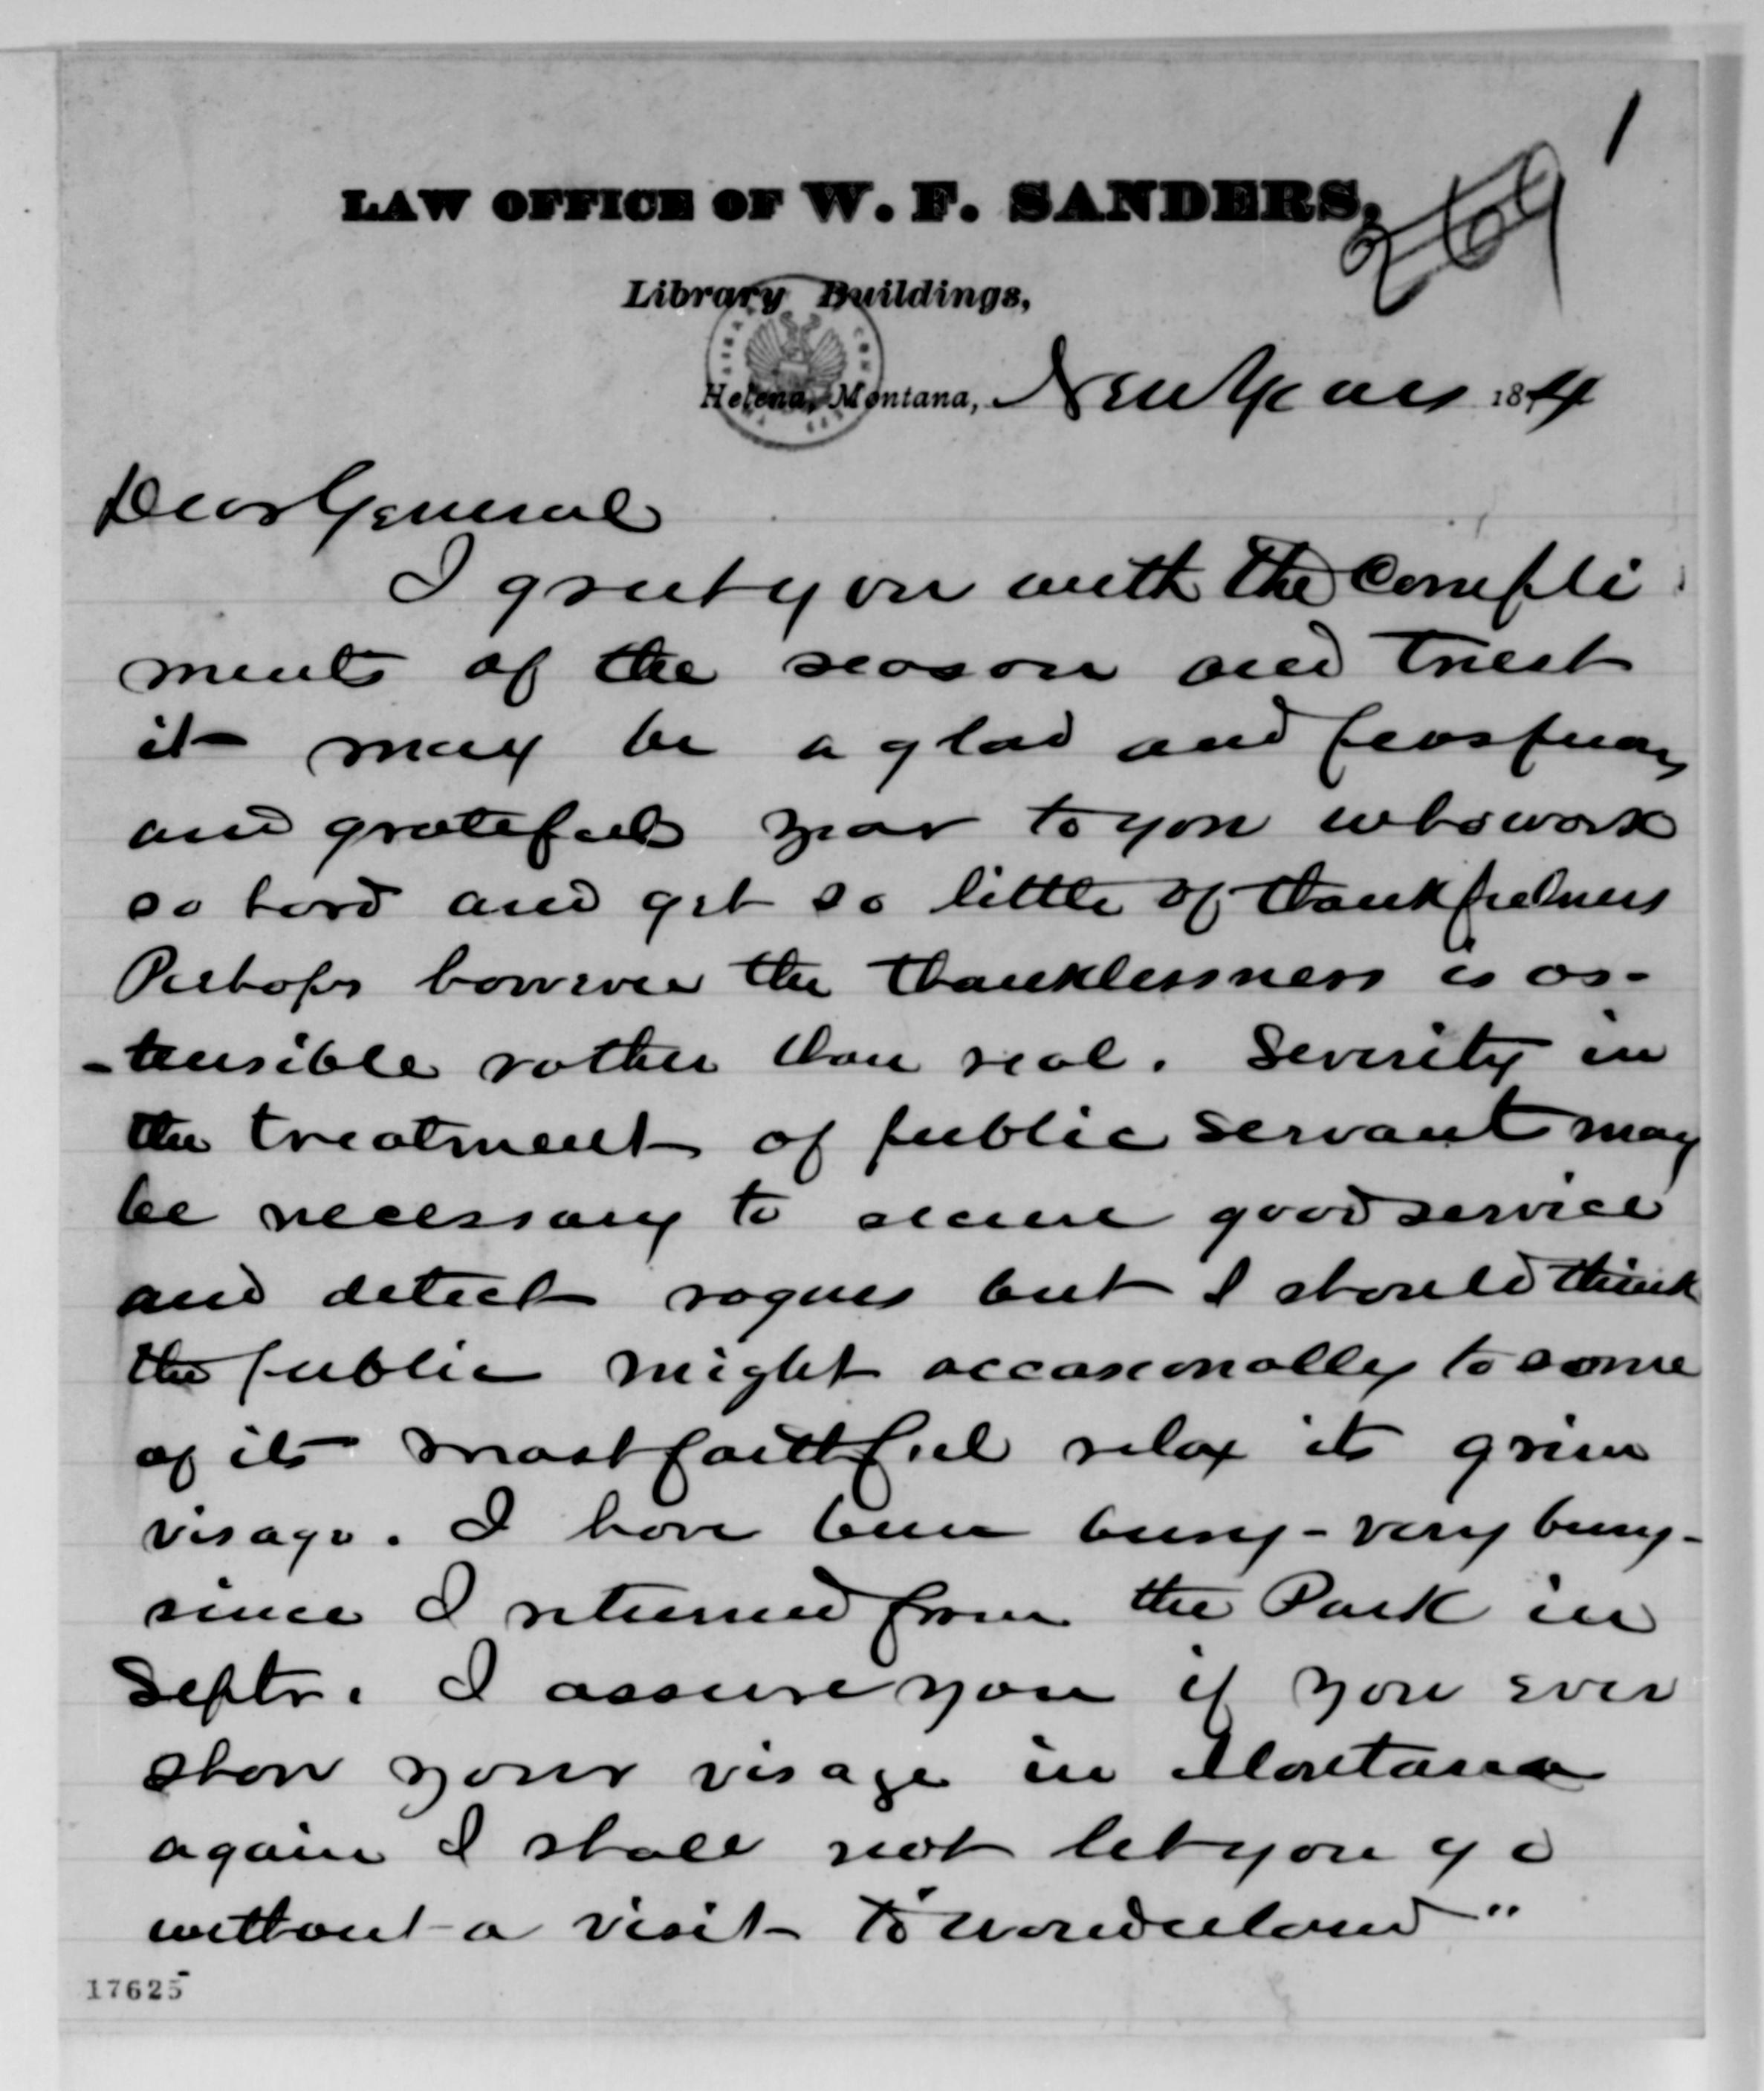 1
LAW OFFICE OF W. F. SANDERS,
269
Library Buildings,
Helena, Montana, New Years 1874
Dear General
I greet you with the compli
ments of the season and trust
it may be a glad and
and grateful year to you who work
so hard and get so little of thankfulness
Perhaps however the thanklessness is os-
-tensible rather than real. Severity in
the treatment of public servant may
be necessary to secure good service
and detect rogues but I should think
the public might occasionally to some
of its most faithful relax its grim
visage. I have been busy - very busy -
since I returned from the Park in
Septr. I assure you if you ever
show your visage in Montana
again I shall not let you go
without a visit to "wonderland"
17625